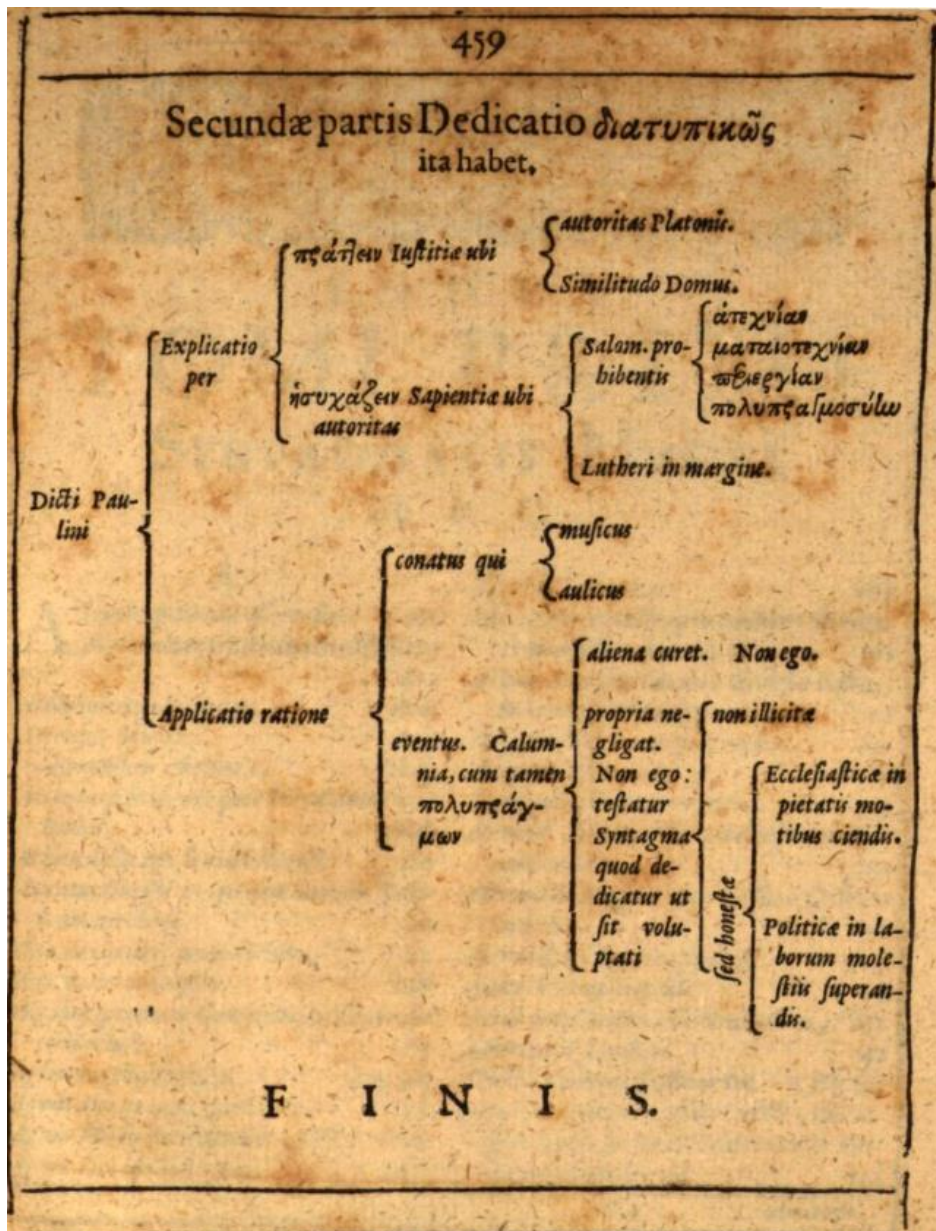 459
Secundæ partis Dedicatio διατυπικῶς
ita habet.
Dicti Pau-
lini
Explicatio
per
πράττειν Iustitiæ ubi
autoritas Platonis.
Similitudo Domus.
ἡσυχάζειν Sapientiæ ubi
autoritas
Salom. pro-
hibentis
ἀτεχνίας
ματαιοτεχνίας
περιεργίαν
πολυπραγμοσύνην
Lutheri in margine.
Applicatio ratione
conatus qui
musicus
aulicus
eventus. Calum-
nia, cum tamen
πολυπράγ-
μων
aliena curet. Non ego.
propria ne-
gligat.
Non ego:
testatur
Syntagma
quod de-
dicatur ut
sit volu-
ptati
non illicitæ
sed honestæ
Ecclesiasticæ in
pietatis mo-
tibus ciendis.
Politicæ in la-
borum mole-
stiis superan-
dis.
F I N I S.